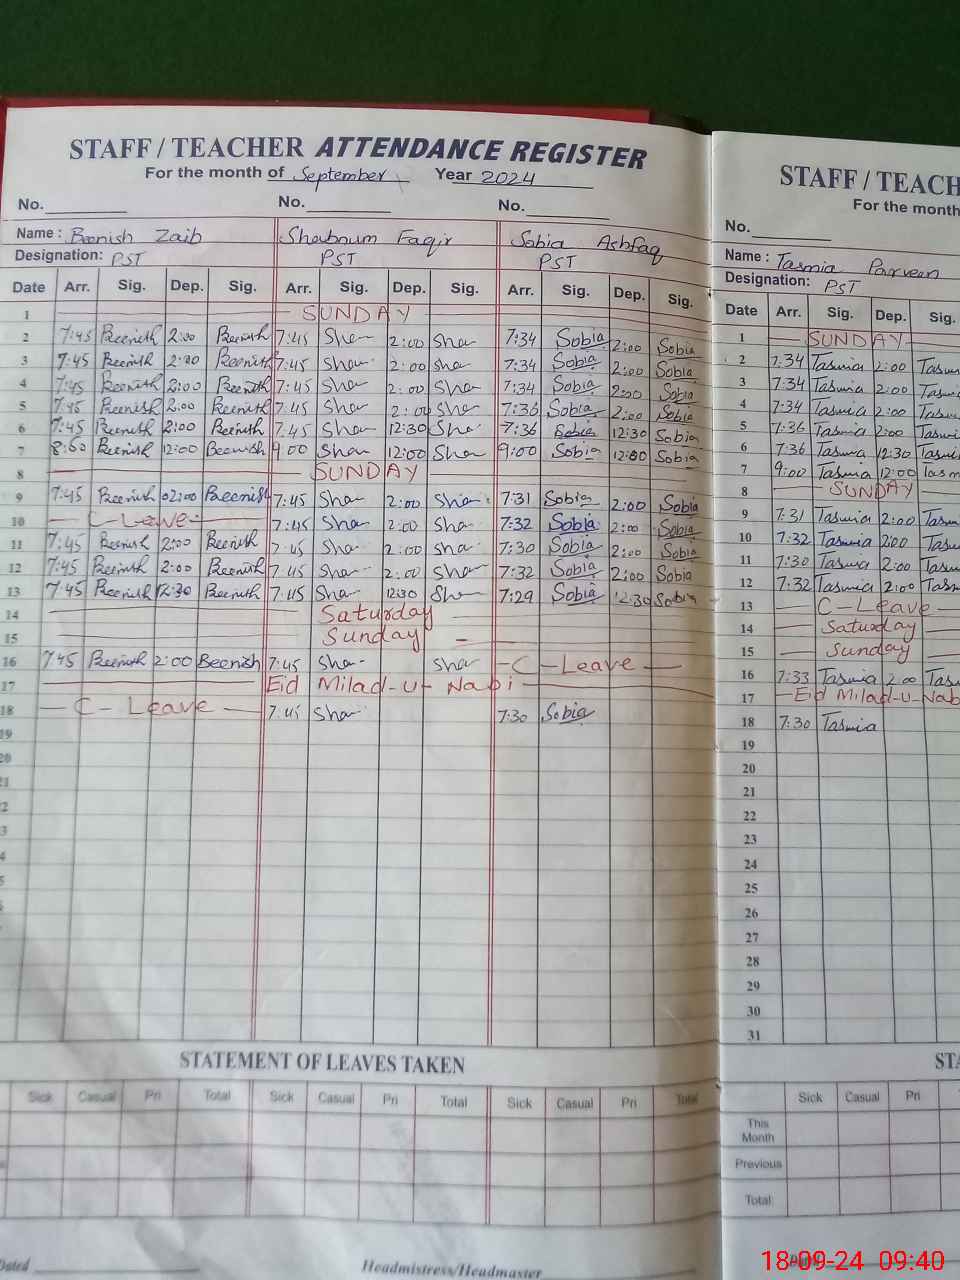 STAFF / TEACHER ATTENDANCE REGISTER
For the month of September Year 2024
No. No. No.
Name : Beenish Zaib Shabnum Faqir Sobia Ashfaq
Designation: PST PST PST
Date Arr. Sig. Dep. Sig. Arr. Sig. Dep. Sig. Arr. Sig. Dep. Sig.
1 SUNDAY
2 7:45 Beenish 2:00 Beenish 7:45 Sha 2:00 Sha 7:34 Sobia 2:00 Sobia
3 7:45 Beenish 2:00 Beenish 7:45 Sha 2:00 Sha 7:34 Sobia 2:00 Sobia
4 7:45 Beenish 2:00 Beenish 7:45 Sha 2:00 Sha 7:34 Sobia 2:00 Sobia
5 7:45 Beenish 2:00 Beenish 7:45 Sha 2:00 Sha 7:36 Sobia 2:00 Sobia
6 7:45 Beenish 2:00 Beenish 7:45 Sha 12:30 Sha 7:36 Sobia 12:30 Sobia
7 Beenish 12:00 Beenish 9:00 Sha 12:00 Sha 9:00 Sobia 12:00 Sobia
8 SUNDAY
9 7:45 Beenish 02:00 Beenish 7:45 Sha 2:00 Sha 7:31 Sobia 2:00 Sobia
10 C-Leave 7:45 Sha 2:00 Sha 7:32 Sobia 2:00 Sobia
11 7:45 Beenish 2:00 Beenish 7:45 Sha 2:00 Sha 7:30 Sobia 2:00 Sobia
12 7:45 Beenish 2:00 Beenish 7:45 Sha 2:00 Sha 7:32 Sobia 2:00 Sobia
13 7:45 Beenish 12:30 Beenish 7:45 Sha 12:30 Sha 7:29 Sobia 12:30 Sobia
14 Saturday
15 Sunday
16 7:45 Beenish 2:00 Beenish 7:45 Sha Sha C-Leave
17 Eid Milad-u-Nabi
18 C-Leave 7:45 Sha 7:30 Sobia
19
20
21
2
3
4
5
STATEMENT OF LEAVES TAKEN
Sick Casual Pri Total Sick Casual Pri Total Sick Casual Pri Total
Dated Headmistress/Headmaster
STAFF / TEACH
For the month
No.
Name : Tasmia Parveen
Designation: PST
Date Arr. Sig. Dep. Sig.
1 SUNDAY
2 7:34 Tasmia 2:00 Tasm
3 7:34 Tasmia 2:00 Tasm
4 7:34 Tasmia 2:00 Tasm
5 7:36 Tasmia 2:00 Tasmi
6 7:36 Tasmia 12:30 Tasmi
7 9:00 Tasmia 12:00 Tasm
8 SUNDAY
9 7:31 Tasmia 2:00 Tasm
10 7:32 Tasmia 2:00 Tasm
11 7:30 Tasmia 2:00 Tasm
12 7:32 Tasmia 2:00 Tasm
13 C-Leave
14 Saturday
15 Sunday
16 7:33 Tasmia 2:00 Tasm
17 Eid Milad-u-Nab
18 7:30 Tasmia
19
20
21
22
23
24
25
26
27
28
29
30
31
STA
Sick Casual Pri
This Month
Previous
Total
18-09-24 09:40